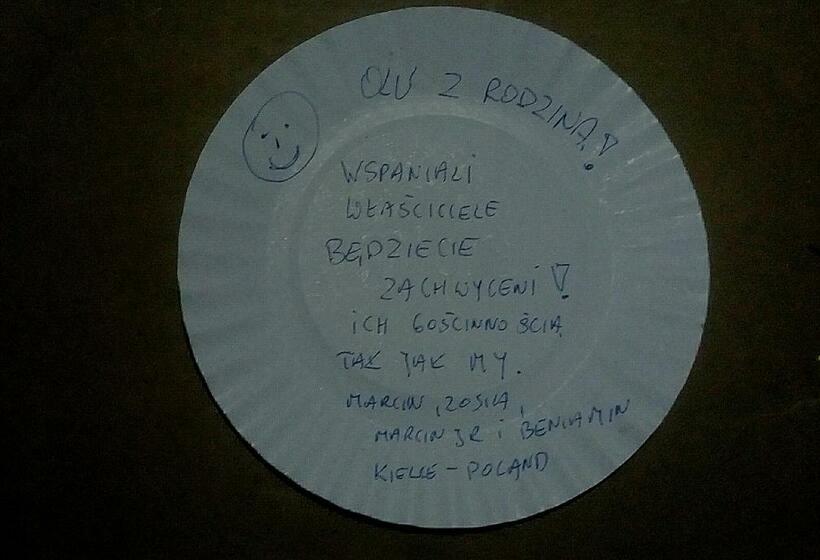 OLU Z RODZINĄ!
WSPANIALI
WŁAŚCICIELE
BĘDZIECIE
ZACHWYCENI!
ICH GOŚCINNOŚCIĄ
TAK JAK MY.
MARCIN, ZOSIA,
MARCIN JR I BENIAMIN
KIELCE - POLAND